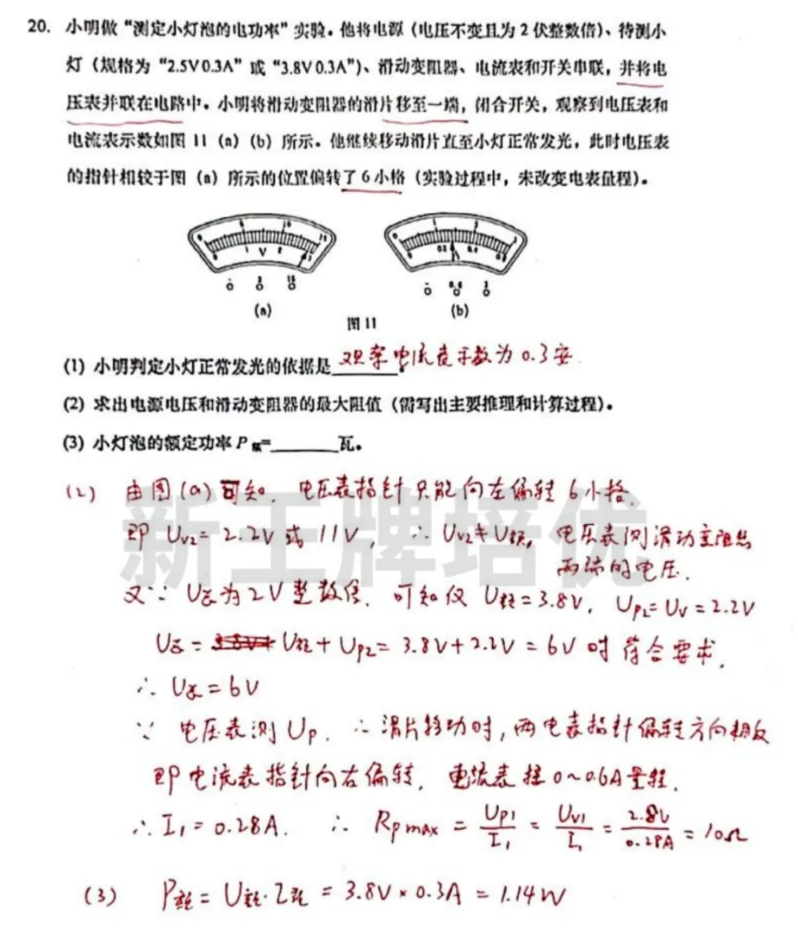 20. 小明做“测定小灯泡的电功率”实验。他将电源（电压不变且为2伏整数倍）、待测小
灯（规格为“2.5V 0.3A”或“3.8V 0.3A”）、滑动变阻器、电流表和开关串联，并将电
压表并联在电路中。小明将滑动变阻器的滑片移至一端，闭合开关，观察到电压表和
电流表示数如图 11（a）（b）所示。他继续移动滑片直至小灯正常发光，此时电压表
的指针相较于图（a）所示的位置偏转了6小格（实验过程中，未改变电表量程）。
V
3 15
0.6 3
(a) (b)
图 11
(1) 小明判定小灯正常发光的依据是 观察电流表示数为0.3安
(2) 求出电源电压和滑动变阻器的最大阻值（需写出主要推理和计算过程）。
(3) 小灯泡的额定功率 P额=______瓦。
(2) 由图(a)可知，电压表指针只能向左偏转6小格.
即 Uv2=2.2V或11V， ∴ Uv2≠U额， 电压表测滑动变阻器
两端的电压.
又∵ U总为2V整数倍. 可知仅 U额=3.8V， Up2=Uv=2.2V
U总= U额+Up2=3.8V+2.2V=6V时符合要求.
∴ U总=6V
∵ 电压表测Up. ∴滑片移动时，两电表指针偏转方向相反
即电流表指针向右偏转， 电流表接0~0.6A量程.
∴ I1=0.28A. ∴ Rpmax = Up1/I1 = Uv1/I1 = 2.8V/0.28A = 10Ω
(3) P额=U额·I额=3.8V×0.3A=1.14W
新王牌培优